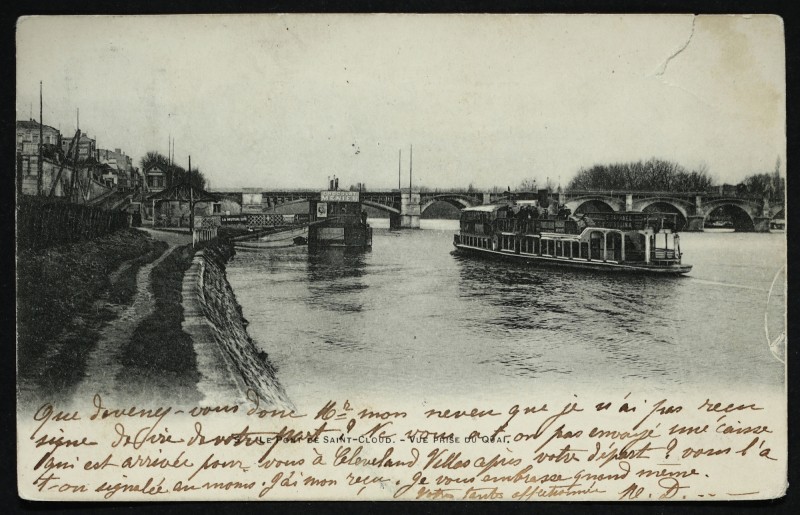 Que devenez-vous donc Mr mon neveu que je n'ai pas reçu
LE PONT DE SAINT-CLOUD. - VUE PRISE DU QUAI.
signe de vie de votre part? Ne vous a-t-on pas envoyé une caisse
qui est arrivée pour vous à Cleveland Villas après votre départ? vous l'a
t-on signalée au moins. J'ai mon reçu. Je vous embrasse quand même.
Votre tante affectionnée M. D.